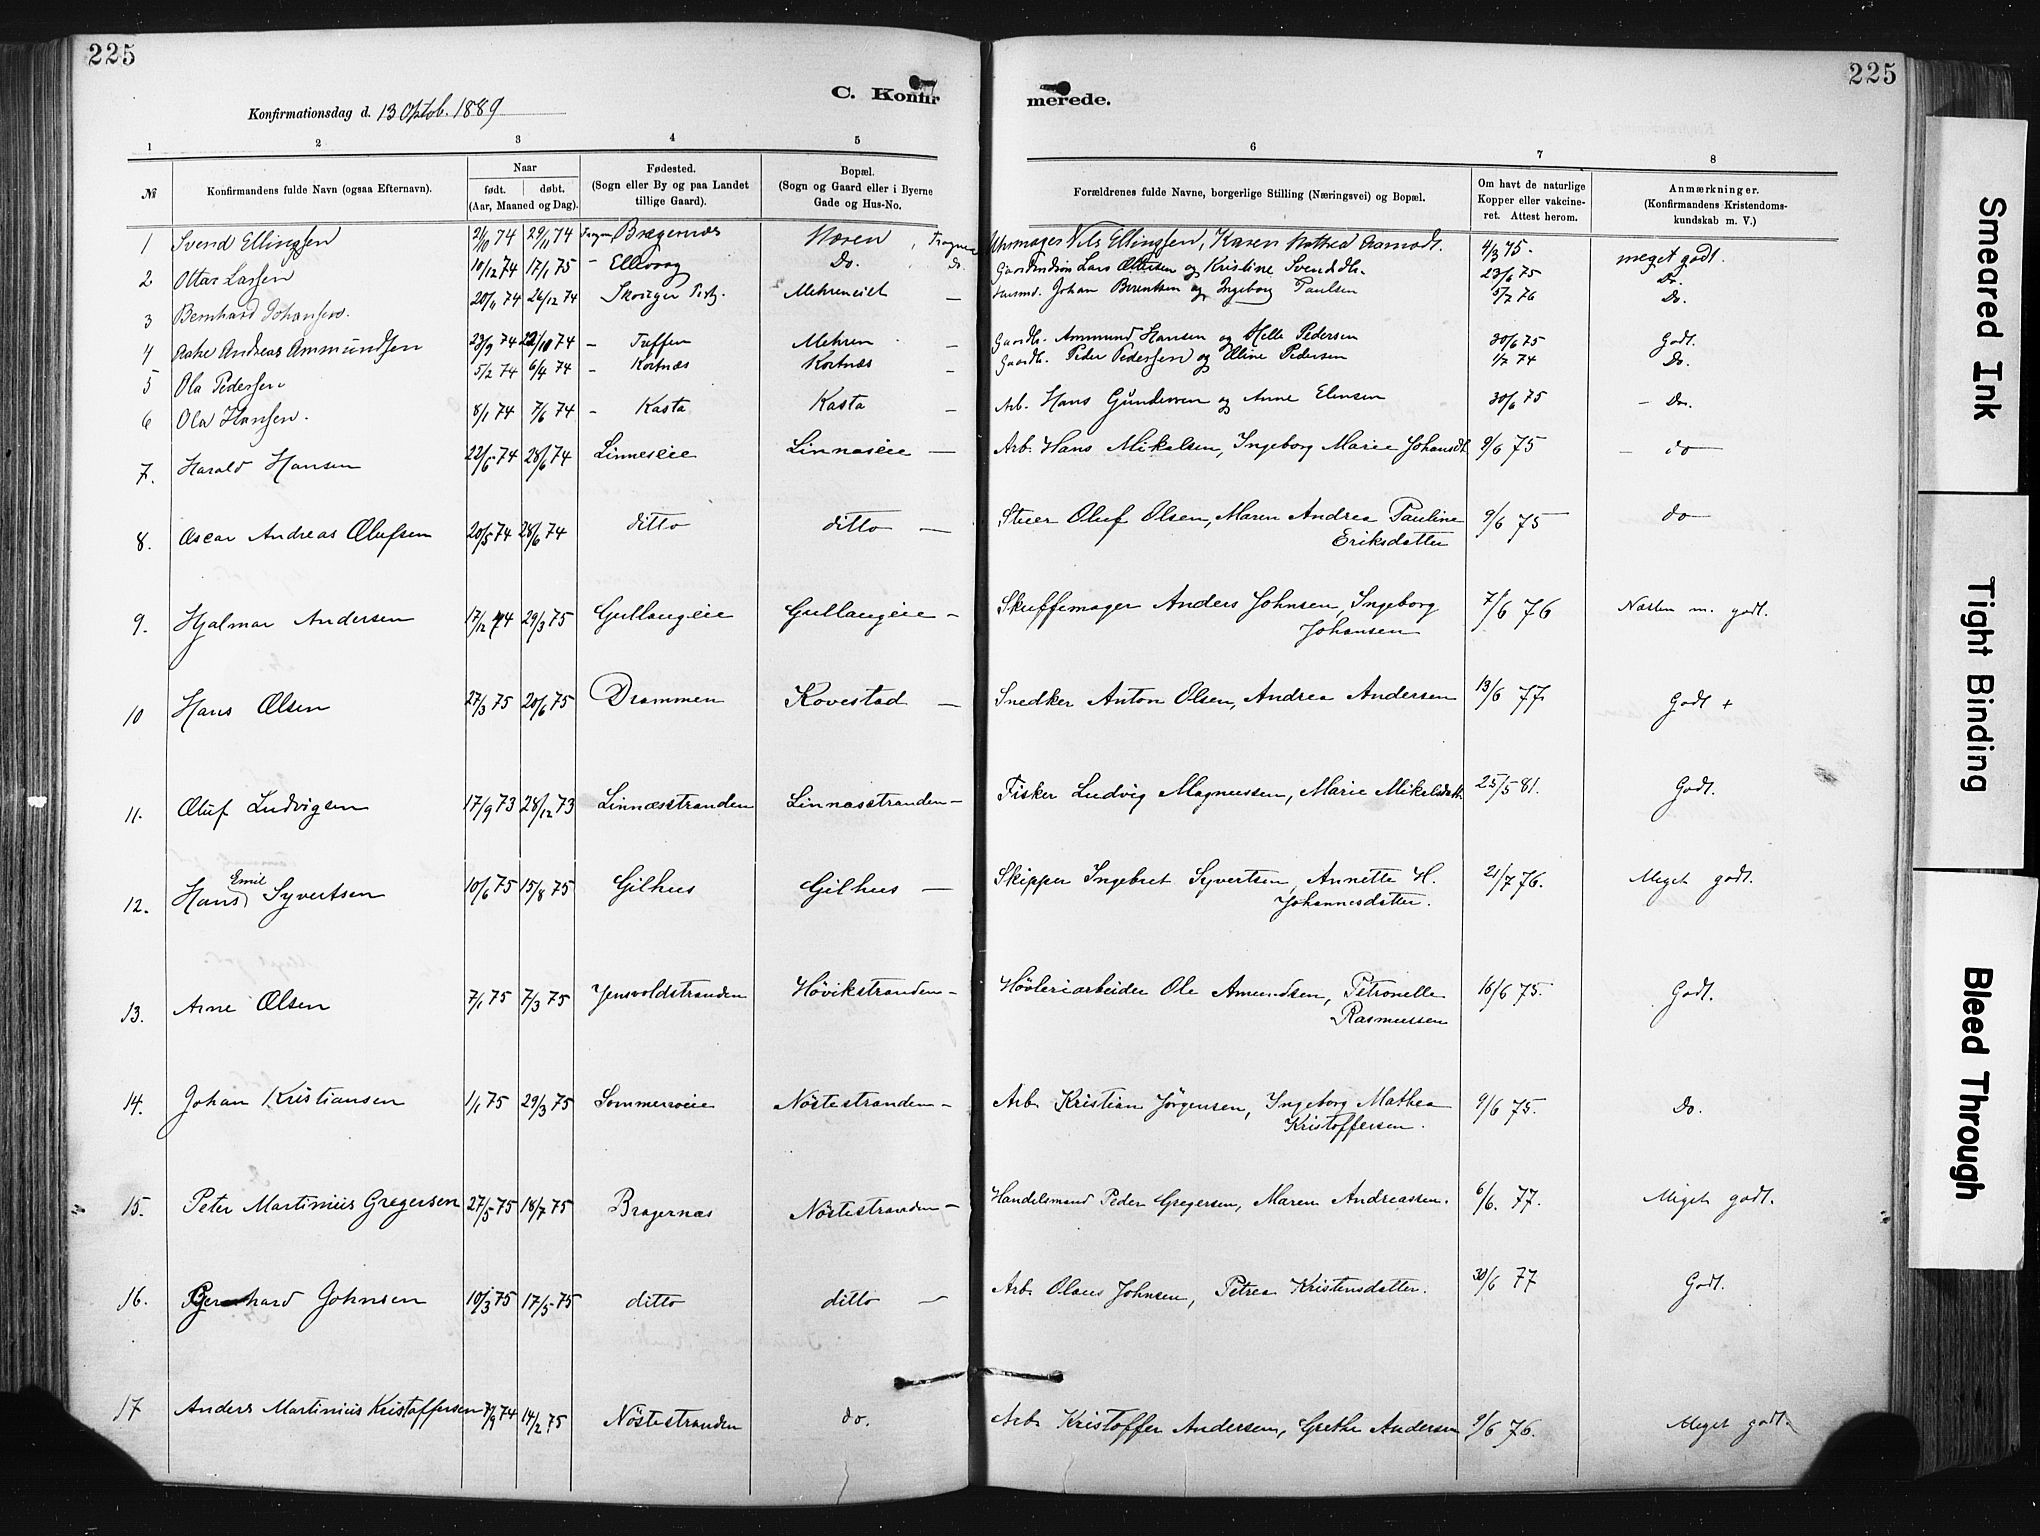 225
225
C. Konfir
merede.
Konfirmationsdag d. 13 Oktob. 1889
1 2 3 4 5 6 7 8
№
Konfirmandens fulde Navn (ogsaa Efternavn).
Naar
født. døbt.
(Aar, Maaned og Dag).
Fødested.
(Sogn eller By og paa Landet
tillige Gaard).
Bopæl.
(Sogn og Gaard eller i Byerne
Gade og Hus-No.
Forældrenes fulde Navne, borgerlige Stilling (Næringsvei) og Bopæl.
Om havt de naturlige
Kopper eller vakcine-
ret. Attest herom.
Anmærkninger.
(Konfirmandens Kristendoms-
kundskab m. V.)
1 Svend Ellingsen 29/11 74 Bragernæs Nils Ellingsen, Karen 4/3 75. meget godt.
2 Ottar Larsen 10/12 74 17/1 75 - Do. Do. Lars Ottersen og Kristine 23/6 75 Do.
3 Bernhard Johansen. 20/11 74 26/12 74 Skouger — Johan Berentsen og Ingeborg Paulsen 5/7 76 Do.
4 Andreas Ammundsen 23/9 74 - Mehren — Gaardb. Ammund Hansen og Helle Pedersen 30/6 75 Godt.
5 Ola Pedersen 5/2 74 6/4 74 - Kortnæs Kortnæs — Gaardb. Peder Pedersen og Eline Pedersen 1/7 74 Do.
6 Ola Hansen. 8/1 74 7/6 74 - Kasta Kasta — Arb. Hans Gundersen og Anne Elensen 30/6 75 - Do.
7. Harald Hansen 22/5 74 28/6 74 Linneseie Linnaseie — Arb. Hans Mikalsen, Ingeborg Marie Johansdt 9/6 75 - do
8. Oscar Andreas Olufsen 20/5 74 28/6 74 ditto ditto — Stuer Oluf Olsen, Maren Andrea Pauline 9/6 75 do
Eriksdatter
9. Hjalmar Andersen 17/12 74 29/3 75 Gullaugeie Gullaugeie - Skuffemager Anders Johnsen, Ingeborg 7/6 76 Næsten m. godt.
Johansen
10 Hans Olsen 27/3 75 20/6 75 Drammen Kovestad — Snedker Anton Olsen, Andrea Andersen 13/6 77 Godt +
11. Oluf Ludvigsen 17/9 73 28/12 73 Linnæsstranden Linnæsstranden - Fisker Ludvig Magnussen, Marie Mikalsdatt. 25/5 81. Godt.
Emil
12. Hans Syvertsen 10/6 75 15/8 75 Gilhus Gilhus — Skipper Ingebret Syvertsen, Annette H. 21/7 76. Meget godt.
Johannesdatter.
13. Arne Olsen 7/1 75 7/3 75 Jensvoldstranden Høvikstranden - Høvleriarbeider Ole Amundsen, Petronelle 16/6 75. Godt.
Rasmussen
14. Johan Kristiansen 1/1 75 29/3 75 Sommeroeie Nøstestranden - Arb. Kristian Jørgensen, Ingeborg Mathea 9/6 75. Do.
Kristoffersen.
15. Peter Martinius Gregersen 27/5 75 18/7 75 Bragernæs Nøstestranden - Handelsmand Peder Gregersen, Maren Andreassen. 6/6. 77. Meget godt.
16. Bernhard Johnsen 10/3 75 17/5 75 ditto ditto - Arb. Olaus Johnsen, Petrea Kristensdatter. 30/6 77 Godt.
17 Anders Martinius Kristoffersen 74 14/2 75 Nøstestranden do. Arb. Kristoffer Andersen, Grethe Andersen 9/6 76. Meget godt.
Smeared Ink
Tight Binding
Bleed Through